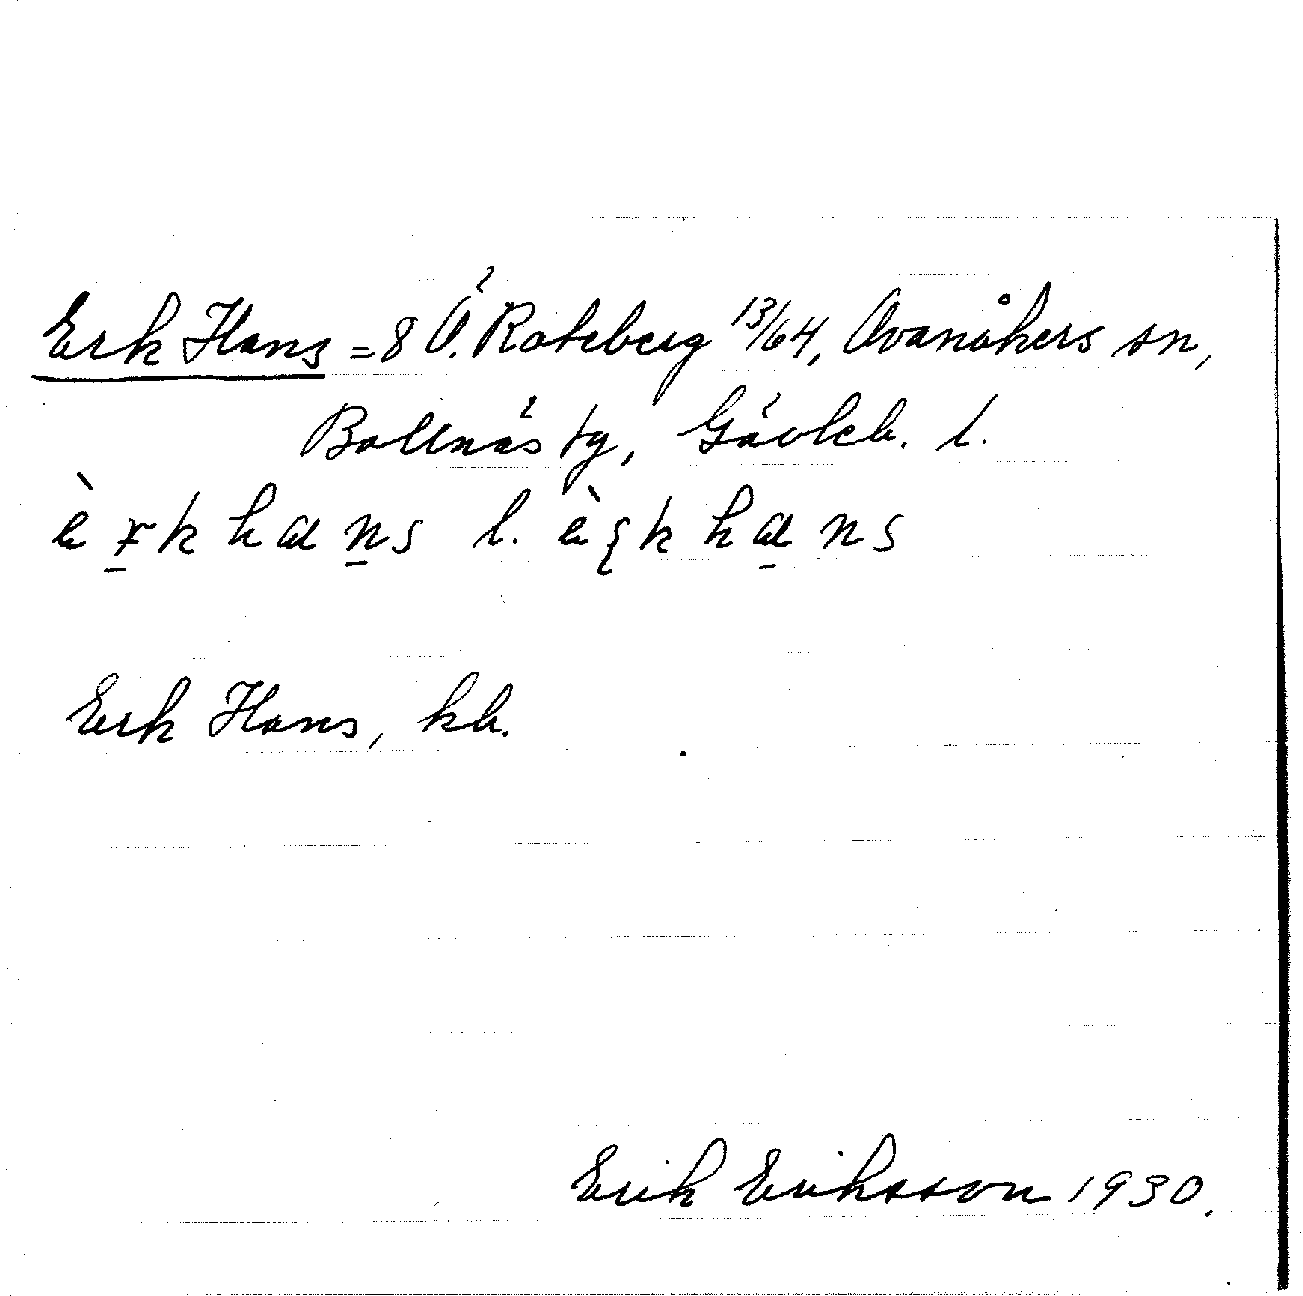 Erk Hans = 8 Ö. Roteberg 13/64, Ovanåkers sn,
Bollnäs tg, Gävleb. l.
l.
Erk Hans, kb.
Erik Eriksson 1930.